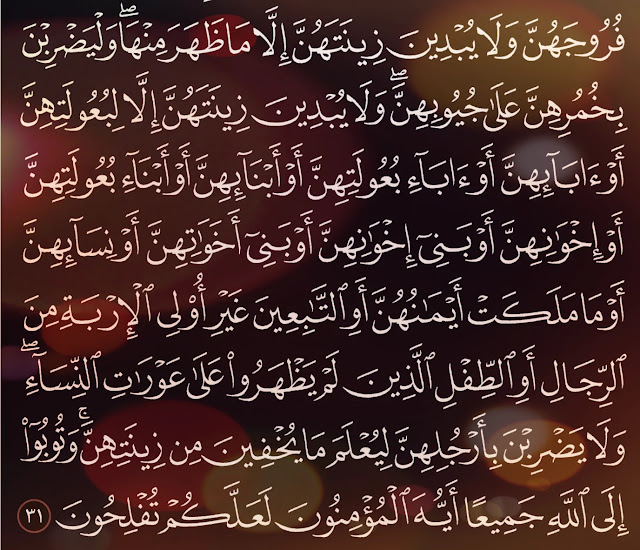 فُرُوجَهُنَّ وَلَا يُبْدِينَ زِينَتَهُنَّ إِلَّا مَا ظَهَرَ مِنْهَا ۖ وَلْيَضْرِبْنَ
بِخُمُرِهِنَّ عَلَىٰ جُيُوبِهِنَّ ۖ وَلَا يُبْدِينَ زِينَتَهُنَّ إِلَّا لِبُعُولَتِهِنَّ
أَوْ ءَابَآئِهِنَّ أَوْ ءَابَآءِ بُعُولَتِهِنَّ أَوْ أَبْنَآئِهِنَّ أَوْ أَبْنَآءِ بُعُولَتِهِنَّ
أَوْ إِخْوَٰنِهِنَّ أَوْ بَنِىٓ إِخْوَٰنِهِنَّ أَوْ بَنِىٓ أَخَوَٰتِهِنَّ أَوْ نِسَآئِهِنَّ
أَوْ مَا مَلَكَتْ أَيْمَٰنُهُنَّ أَوِ ٱلتَّٰبِعِينَ غَيْرِ أُو۟لِى ٱلْإِرْبَةِ مِنَ
ٱلرِّجَالِ أَوِ ٱلطِّفْلِ ٱلَّذِينَ لَمْ يَظْهَرُوا۟ عَلَىٰ عَوْرَٰتِ ٱلنِّسَآءِ ۖ
وَلَا يَضْرِبْنَ بِأَرْجُلِهِنَّ لِيُعْلَمَ مَا يُخْفِينَ مِن زِينَتِهِنَّ ۚ وَتُوبُوٓا۟
إِلَى ٱللَّهِ جَمِيعًا أَيُّهَ ٱلْمُؤْمِنُونَ لَعَلَّكُمْ تُفْلِحُونَ ٣١